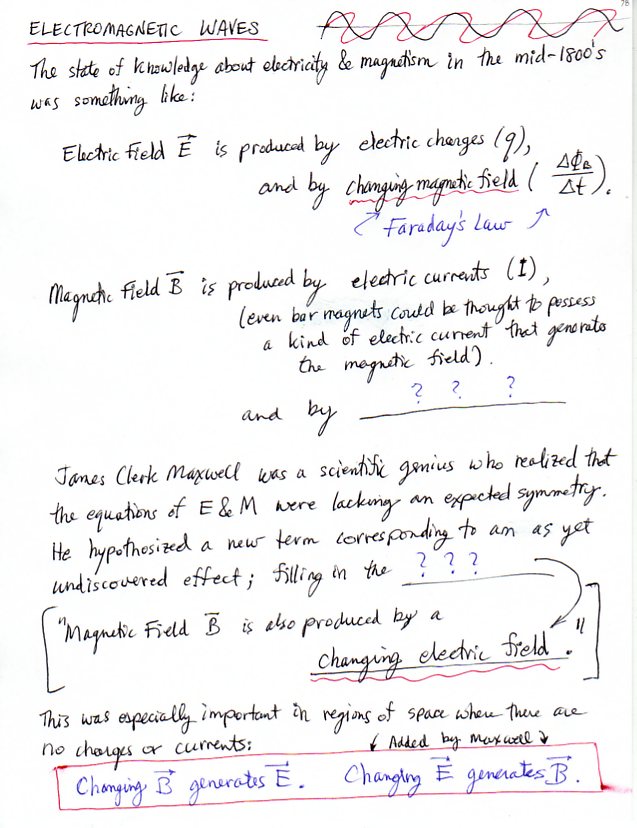 78
ELECTROMAGNETIC WAVES
The state of knowledge about electricity & magnetism in the mid-1800's
was something like:
Electric Field E⃗ is produced by electric charges (q),
and by changing magnetic field (ΔΦ_B/Δt).
Faraday's Law
Magnetic Field B⃗ is produced by electric currents (I),
(even bar magnets could be thought to possess
a kind of electric current that generates
the magnetic field).
? ? ?
and by ____________
James Clerk Maxwell was a scientific genius who realized that
the equations of E & M were lacking an expected symmetry.
He hypothosized a new term corresponding to an as yet
undiscovered effect; filling in the ? ? ?
["Magnetic Field B⃗ is also produced by a
changing electric field."]
This was especially important in regions of space where there are
no charges or currents:
Added by Maxwell
Changing B⃗ generates E⃗. Changing E⃗ generates B⃗.